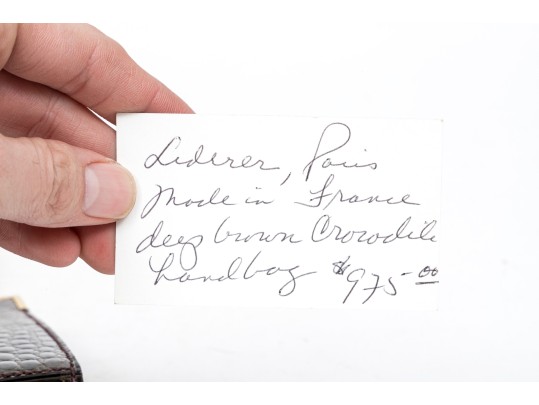 Lederer, Paris
Made in France
deep brown Crocodile
handbag $975.00